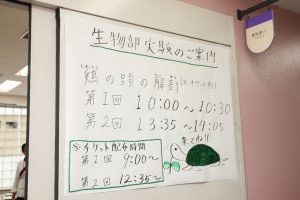 生物部実験のご案内
鶏の頭の解剖(※チケット制)
第1回 10:00～10:30
第2回 13:35～14:05
来てね!!
※チケット配布時間
第1回 9:00～
第2回 12:35～